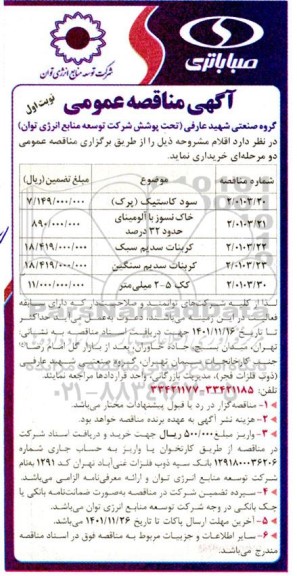 صباباتری
شرکت توسعه منابع انرژی توان
آگهی مناقصه عمومی
نوبت اول
گروه صنعتی شهید عارفی (تحت پوشش شرکت توسعه منابع انرژی توان)
در نظر دارد اقلام مشروحه ذیل را از طریق برگزاری مناقصه عمومی
دو مرحله‌ای خریداری نماید.
شماره مناقصه موضوع مبلغ تضمین (ریال)
۲/۰۱۰۳/۲۰ سود کاستیک (پرک) ۷/۱۴۹/۰۰۰/۰۰۰
۲/۰۱۰۳/۲۱ خاک نسوز با آلومینای حدود ۳۲ درصد ۸۹۰/۰۰۰/۰۰۰
۲/۰۱۰۳/۲۲ کربنات سدیم سبک ۱۸/۴۱۹/۰۰۰/۰۰۰
۲/۰۱۰۳/۲۳ کربنات سدیم سنگین ۱۸/۴۱۹/۰۰۰/۰۰۰
۲/۰۱۰۳/۳۰ کک ۵-۲ میلی‌متر ۱۱/۰۰۰/۰۰۰/۰۰۰
لذا از کلیه شرکت‌های توانمند و صلاحیت‌دار که دارای سابقه
تا تاریخ ۱۴۰۱/۱۱/۱۶ جهت دریافت اسناد مناقصه به نشانی
جنب کارخانجات سیمان تهران، گروه صنعتی شهید عارفی
(ذوب فلزات فجر)، مدیریت بازرگانی، واحد قراردادها مراجعه نمایند.
تلفن: ۳۳۴۲۱۱۸۵-۳۳۴۲۱۱۷۷
۱- مناقصه‌گزار در رد یا قبول پیشنهادات مختار می‌باشد.
۲- هزینه نشر آگهی به عهده برنده مناقصه خواهد بود.
۳- واریز مبلغ ۵۰۰/۰۰۰ ریال جهت خرید و دریافت اسناد شرکت
در مناقصه از طریق کارتخوان یا واریز به حساب جاری شماره
۱۲۹۱۸۰۰۰۳۶۲۰۶ بانک سپه ذوب فلزات غنی‌آباد تهران کد ۱۲۹۱ به‌نام
شرکت توسعه منابع انرژی توان و ارائه معرفی‌نامه الزامی می‌باشد.
۴- سپرده تضمین شرکت در مناقصه به‌صورت ضمانت‌نامه بانکی یا
چک بانکی در وجه شرکت توسعه منابع انرژی توان می‌باشد.
۵- آخرین مهلت ارسال پاکات تا تاریخ ۱۴۰۱/۱۱/۲۶ می‌باشد.
۶- سایر اطلاعات و جزییات مربوط به مناقصه فوق در اسناد مناقصه
مندرج می‌باشد.